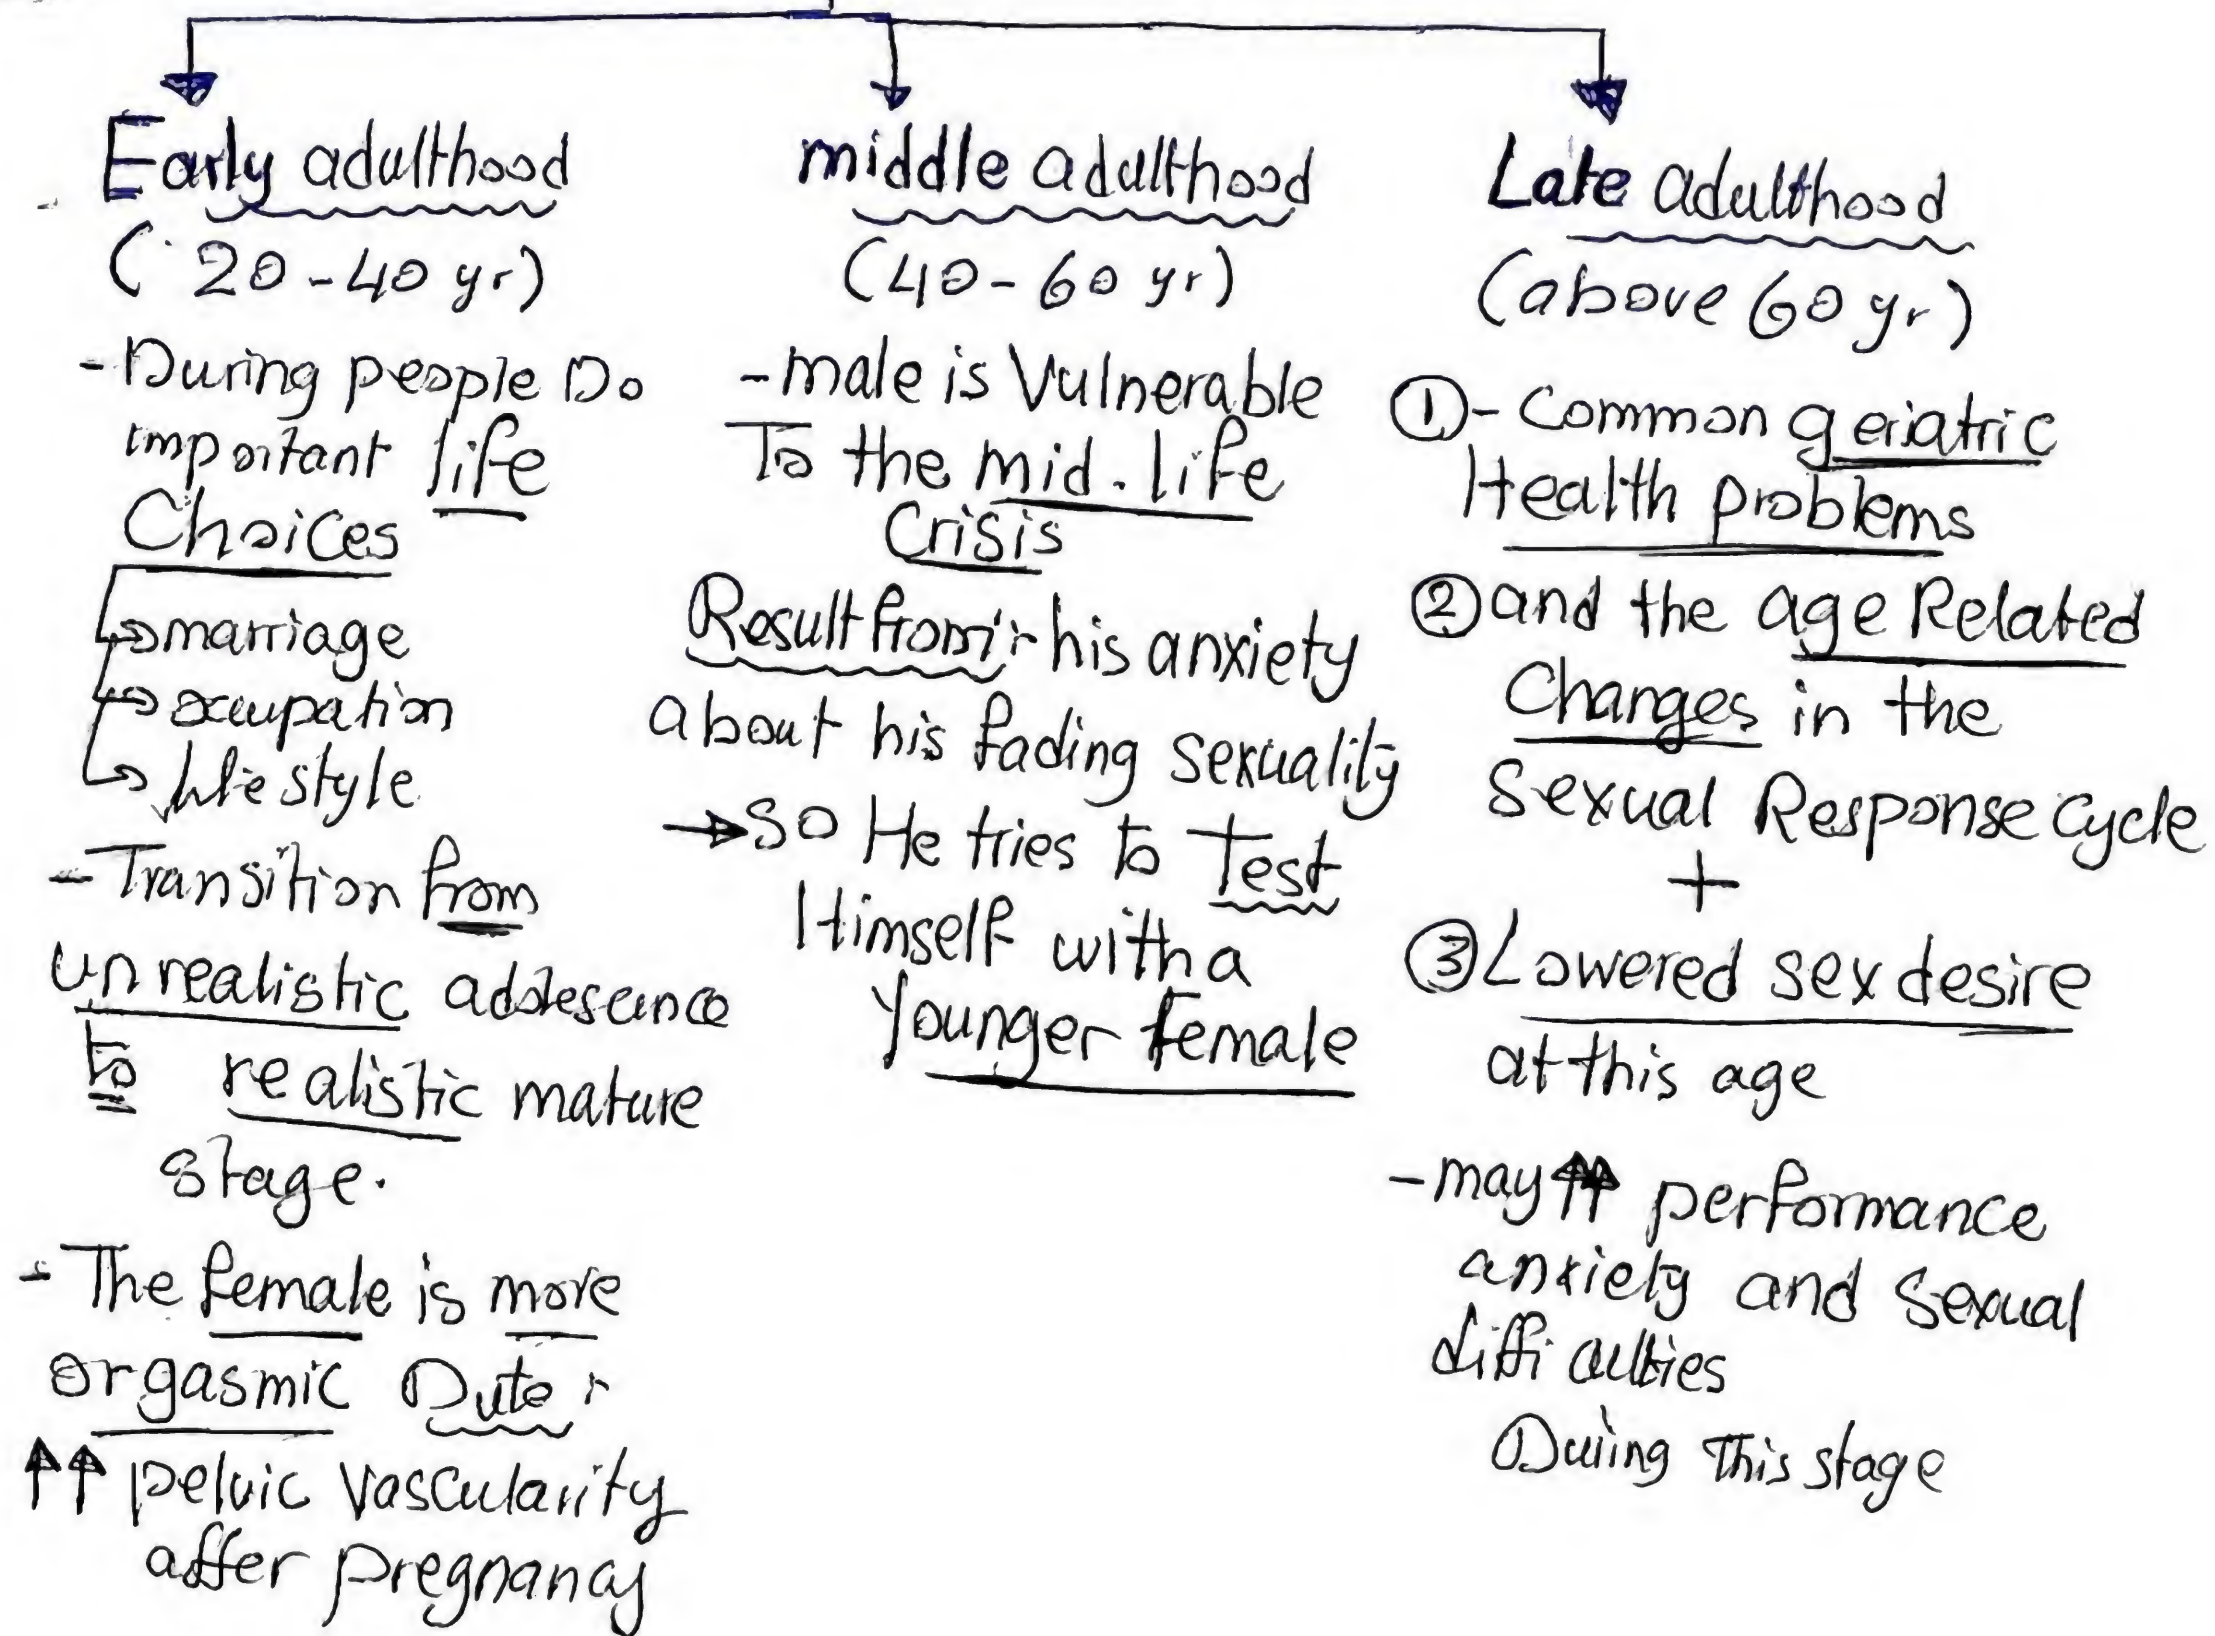 Early adulthood
(20-40 yr)
- During people Do
important life
Choices
marriage
occupation
life style
- Transition from
unrealistic adolescence
to realistic mature
stage.
- The female is more
orgasmic Duto:
↑↑ pelvic vascularity
after pregnancy
middle adulthood
(40-60 yr)
- male is Vulnerable
To the mid.life
Crisis
Result from:- his anxiety
about his fading sexuality
→ so He tries to Test
Himself with a
younger female
Late adulthood
(above 60 yr)
① - Common geriatric
Health problems
② and the age Related
Changes in the
Sexual Response Cycle
+
③ Lowered sex desire
at this age
- may ↑↑ performance
anxiety and sexual
difficulties
During This stage